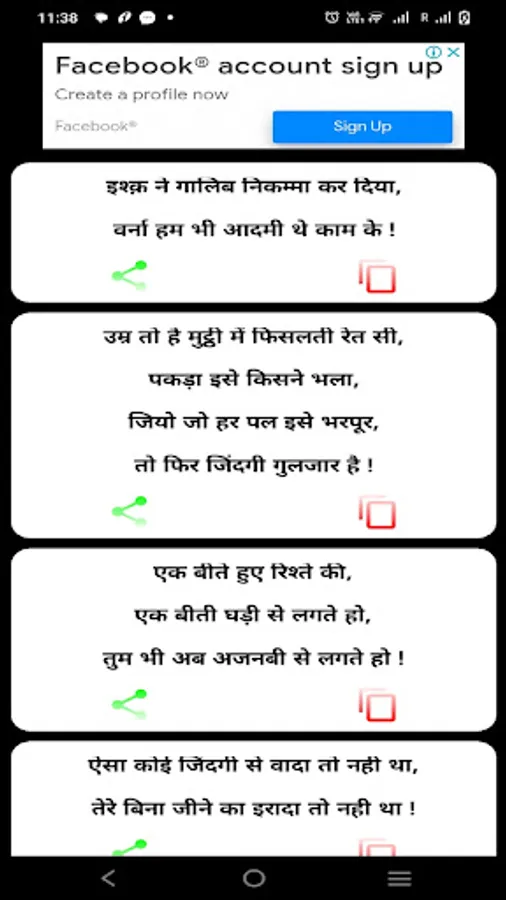 11:38
R
Facebook® account sign up
Create a profile now
Facebook®
Sign Up
इश्क़ ने गालिब निकम्मा कर दिया,
वर्ना हम भी आदमी थे काम के !
उम्र तो है मुट्ठी में फिसलती रेत सी,
पकड़ा इसे किसने भला,
जियो जो हर पल इसे भरपूर,
तो फिर जिंदगी गुलजार है !
एक बीते हुए रिश्ते की,
एक बीती घड़ी से लगते हो,
तुम भी अब अजनबी से लगते हो !
ऐसा कोई जिंदगी से वादा तो नही था,
तेरे बिना जीने का इरादा तो नही था !